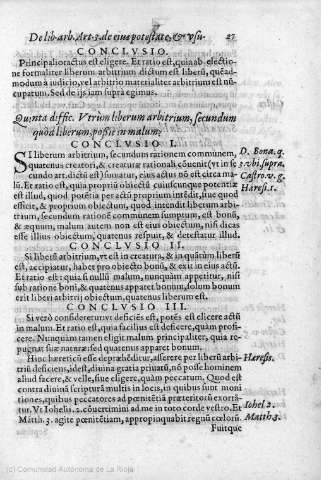 De lib. arb. Art. 3. de eius potestate, & vsu. 27
CONCLVSIO.
Principalior actus est eligere. Et ratio est, quia ab electio
ne formaliter liberum arbitrium dictum est liberũ, quẽad-
modum à iudicio, vel arbitrio materialiter arbitrium est nũ
cupatum. Sed de ijs iam suprà egimus.
Quinta diffic. Vtrùm liberum arbitrium, secundum
quod liberum, poßit in malum?
CONCLVSIO I.
SI liberum arbitrium, secundum rationem communem,
quatenus creatori, & creaturæ rationali cõuenit (vt in se
cundo art. dictũ est) sumatur, eius actus nõ est circa ma-
lũ. Et ratio est, quia propriũ obiectũ cuiuscunque potentiæ
est illud, quod potẽtia per actũ proprium intẽdit, siue quod
efficit, & proprium obiectum, quod intendit liberum arbi-
trium, secundum rationẽ communem sumptum, est bonũ,
& æquum, malum autem non est eius obiectum, nisi dicas
esse illius obiectum, quatenus respuit, & detestatur illud.
D. Bona. q.
3. vbi suprà
Castro v. g.
Hæres. 1.
CONCLVSIO II.
Si liberũ arbitriũ, vt est in creatura, & in quãtùm liberũ
est, accipiatur, habet pro obiecto bonũ, & exit in eius actũ.
Et ratio est: quia is nullũ malum, nunquàm appetitur, nisi
sub ratione boni, & quatenus apparet bonum, solum bonum
erit liberi arbitrij obiectum, quatenus liberum est.
CONCLVSIO III.
Si verò consideretur, vt deficiẽs est, potẽs est elicere actũ
in malum. Et ratio est, quia facilius est deficere, quàm profi-
cere. Nunquàm tamen eligit malum principaliter, quia re-
pugnat suæ naturæ: sed quatenus apparet bonum.
Hinc hæreticũ esse deprehẽditur, asserere per liberũ arbi-
triũ deficiens, idest, diuina gratia priuatũ, nõ posse hominem
aliud facere, & velle, siue eligere, quàm peccatum. Quod est
contra diuinã scripturã multis in locis, in quibus sunt moni
tiones, quibus peccatores ad pœnitẽtiã præteritorũ exortã-
tur. Vt Iohelis. 2. cõuertimini ad me in toto corde vestro. Et
Matth. 3. agite pœnitẽtiam, appropinquabit regnũ cœlorũ.
Hæresis.
Iohel 2.
Matth 3.
Fuitque
(c) Comunidad Autónoma de La Rioja